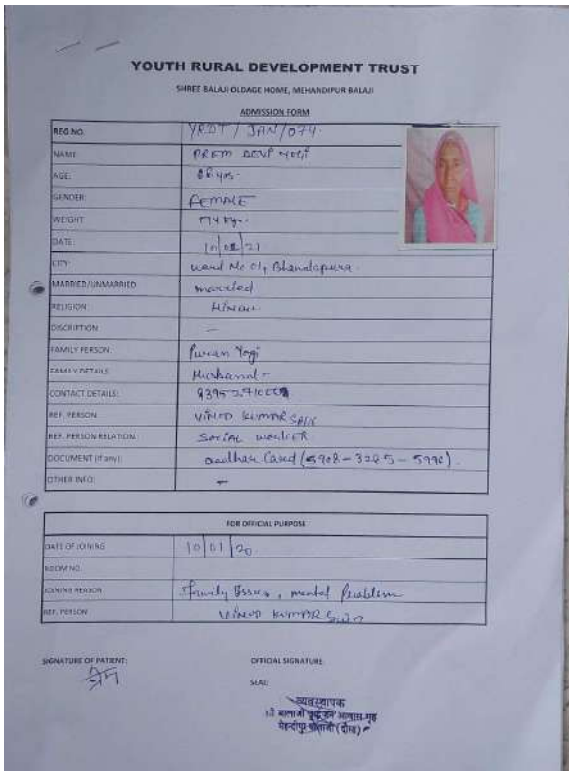 YOUTH RURAL DEVELOPMENT TRUST
SHREE BALAJI OLDAGE HOME, MEHANDIPUR BALAJI
ADMISSION FORM
REG NO. YRDT / JAN / 074
NAME: PREM DEVI YOGI
AGE: yrs.
GENDER: FEMALE
WEIGHT kg.
DATE:
CITY: ward No 01, Bhandapura
MARRIED/UNMARRIED married
RELIGION: HINDU
DISCRIPTION: —
FAMILY PERSON: Puran Yogi
FAMILY DETAILS: Husband -
CONTACT DETAILS:
REF. PERSON VINOD KUMAR SAIN
REF. PERSON RELATION: SOCIAL worker
DOCUMENT (If any): aadhar Card
OTHER INFO: —
FOR OFFICIAL PURPOSE
DATE OF JOINING 10/01/20
ROOM NO.
JOINING REASON family Issues, mental Problem
REF. PERSON VINOD KUMAR
SIGNATURE OF PATIENT: OFFICIAL SIGNATURE
प्रेम SEAL:
व्यवस्थापक
श्री बालाजी वृद्ध जन आवास गृह
मेहन्दीपुर बालाजी (दौसा)